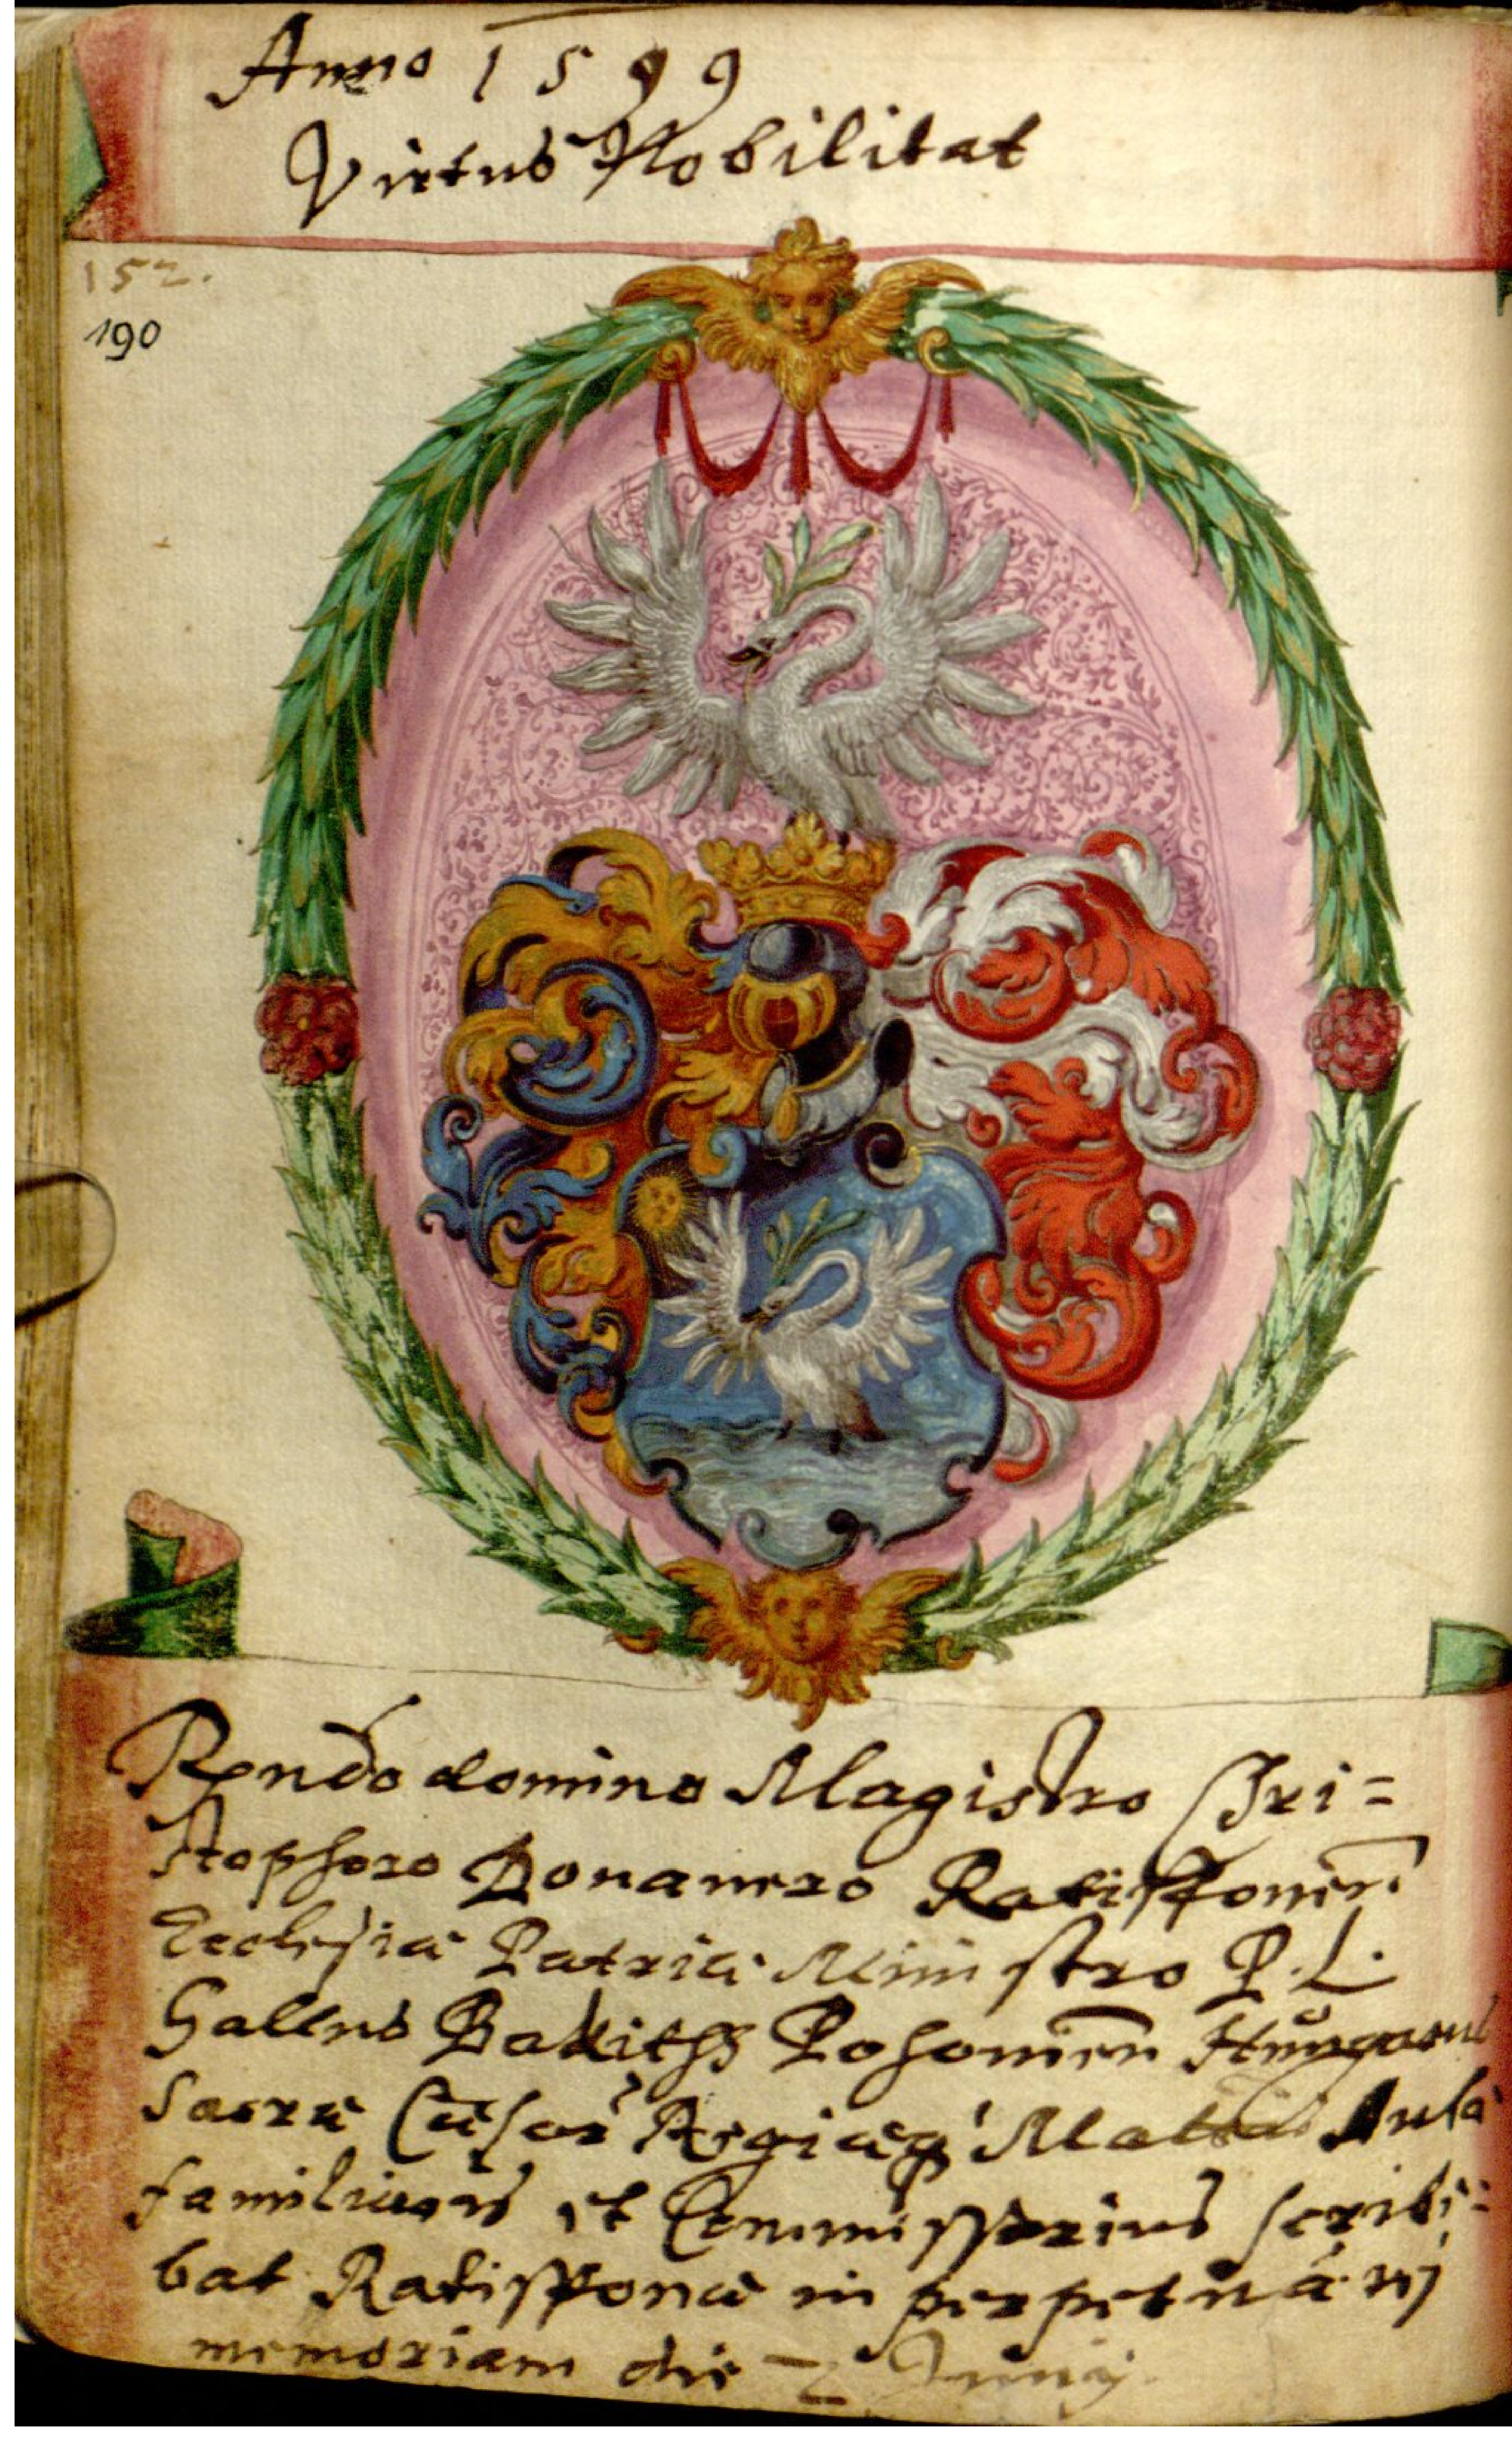 Anno 1599
Virtus Nobilitat
152.
190
Rendo domino Magistro Chri=
stophoro Donauero Ratisponen
Ecclesiæ Patriæ Ministro P. L.
Gallus Posonien Hungarus
Sacræ Cæsar Regiæq Aulæ
familiaris et Commissarius scribe=
bat Ratisponæ in perpetuā
memoriam die Junij